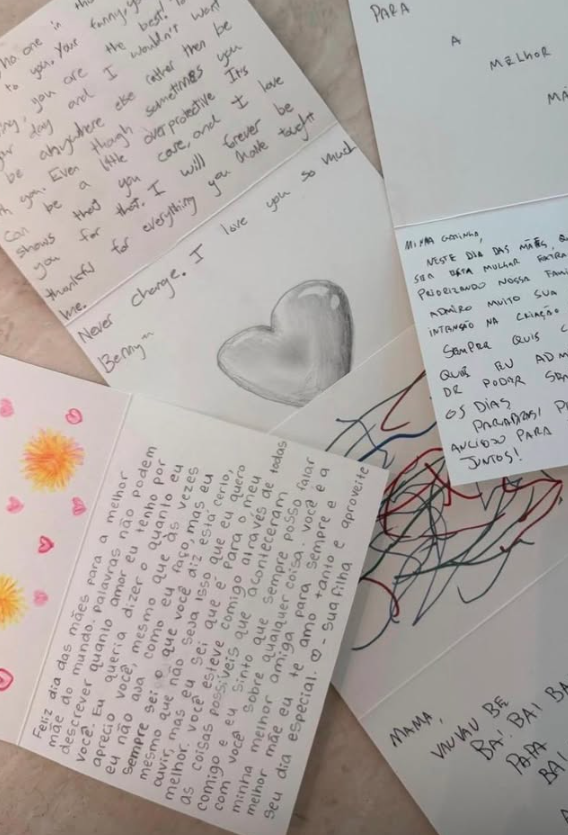 to you. Your funny,
you are the best.
day and I wouldn't want
be anywhere else rather then be
you. Even though sometimes you
can be a little overprotective Its
shows that you care, and I love
you for that. I will forever be
thankful for everything you have taught
me.
Never change. I love you so much
Benny
PARA
A
MELHOR
MINHA
NESTE DIA DAS MÃES,
MULHER
PRIORIZANDO NOSSA
ADMIRO MUITO SUA
NA CRIAÇÃO
SEMPRE QUIS
QUE EU
DE PODER
OS DIAS
PARABÉNS!
PARA
JUNTOS!
Feliz dia das mães para a melhor
mãe do mundo. Palavras não podem
descrever quanto amor eu tenho por
você. Eu queria dizer o quanto eu
aprecio você, mesmo que às vezes
eu não aja como eu faço, mas eu
sempre sei o que você diz está certo,
mesmo que não seja isso que eu quero
ouvir, mas eu sei que é para o meu
melhor. Você esteve comigo através de todas
as coisas possíveis que aconteceram
comigo e eu sinto que sempre posso falar
com você sobre qualquer coisa. Você é a
minha melhor amiga para sempre e a
melhor mãe eu te amo tanto e aproveite
seu dia especial. ♡ - sua filha
MAMA,
VAUVAU BE
BA! BA! BA
PAPA
BA!